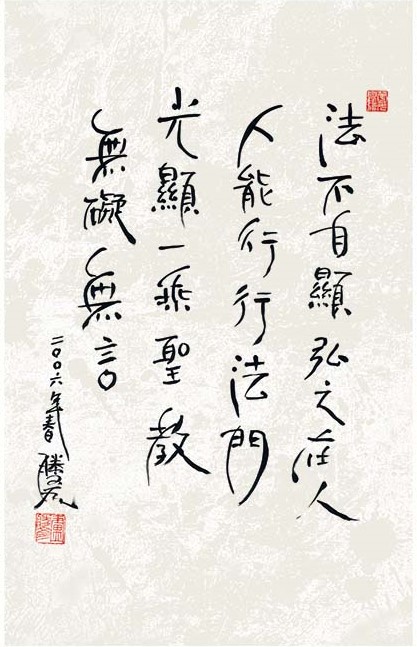 法不自顯弘之在人
人能行行法門
光顯一乘聖教
無礙無言
二〇〇六年春